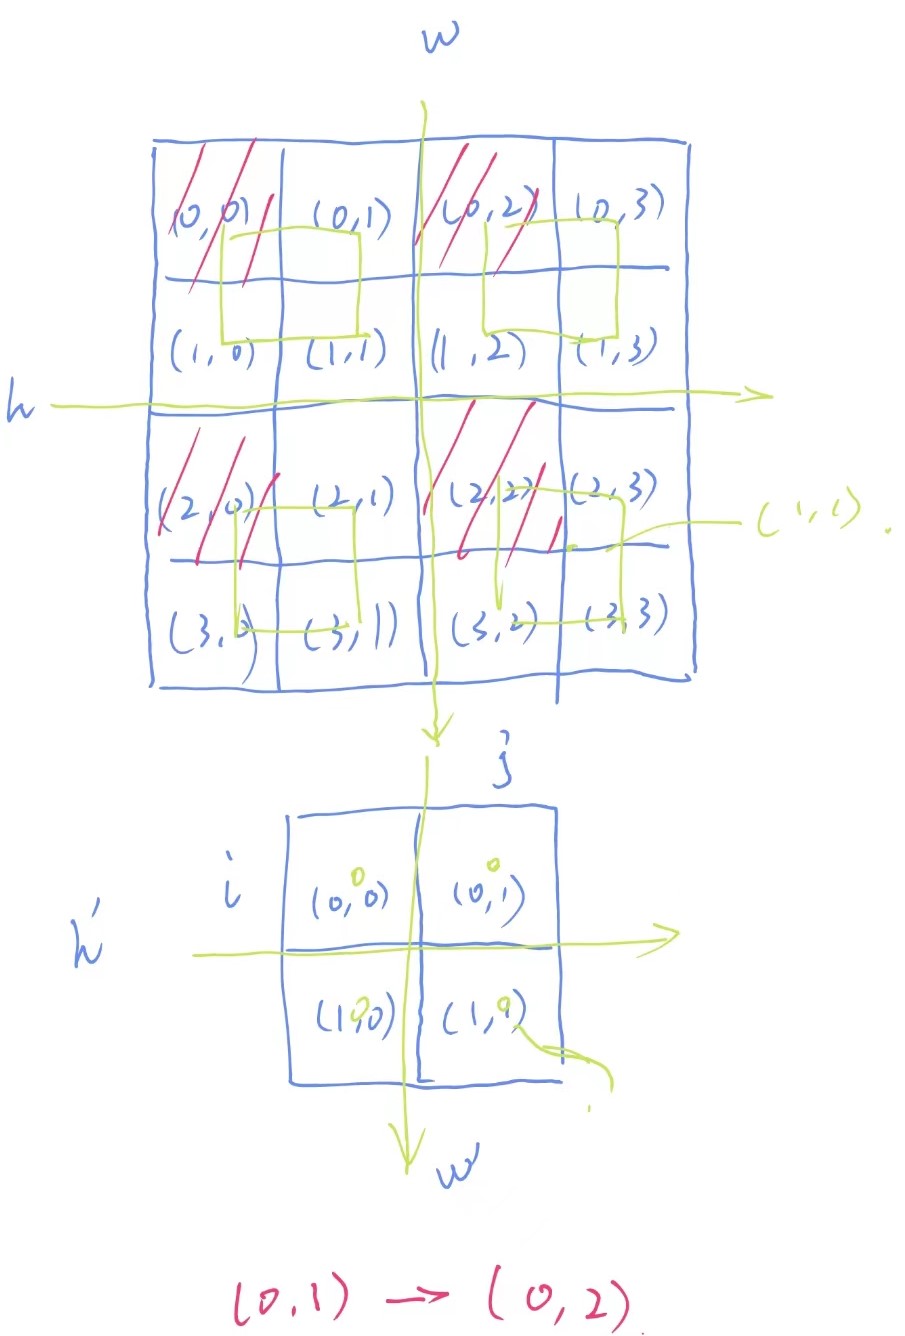 w
(0,0) (0,1) (0,2) (0,3)
(1,0) (1,1) (1,2) (1,3)
h
(2,0) (2,1) (2,2) (2,3)
(1,1).
(3,0) (3,1) (3,2) (3,3)
j
i
(0,0) (0,1)
h'
(1,0) (1,1)
w'
(0,1) → (0,2)